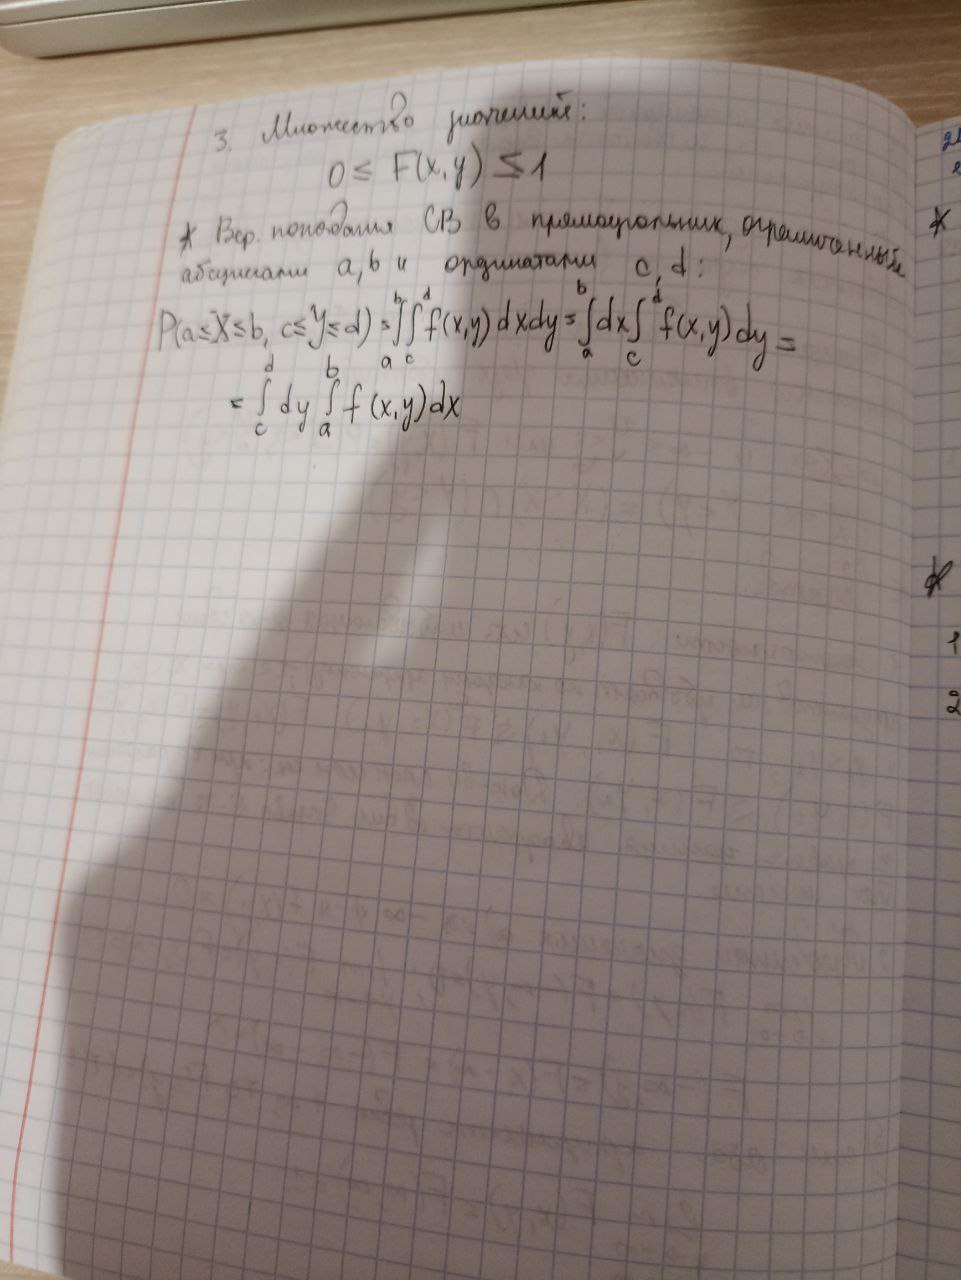 3. Множество значений:
0 ≤ F(x,y) ≤ 1
* Вер. попадания СВ в прямоугольник, ограниченный
абсциссами a, b и ординатами c, d:
P(a≤X≤b, c≤Y≤d) = ∫_a^b ∫_c^d f(x,y) dxdy = ∫_a^b dx ∫_c^d f(x,y) dy =
= ∫_c^d dy ∫_a^b f(x,y) dx
*
*
1
2